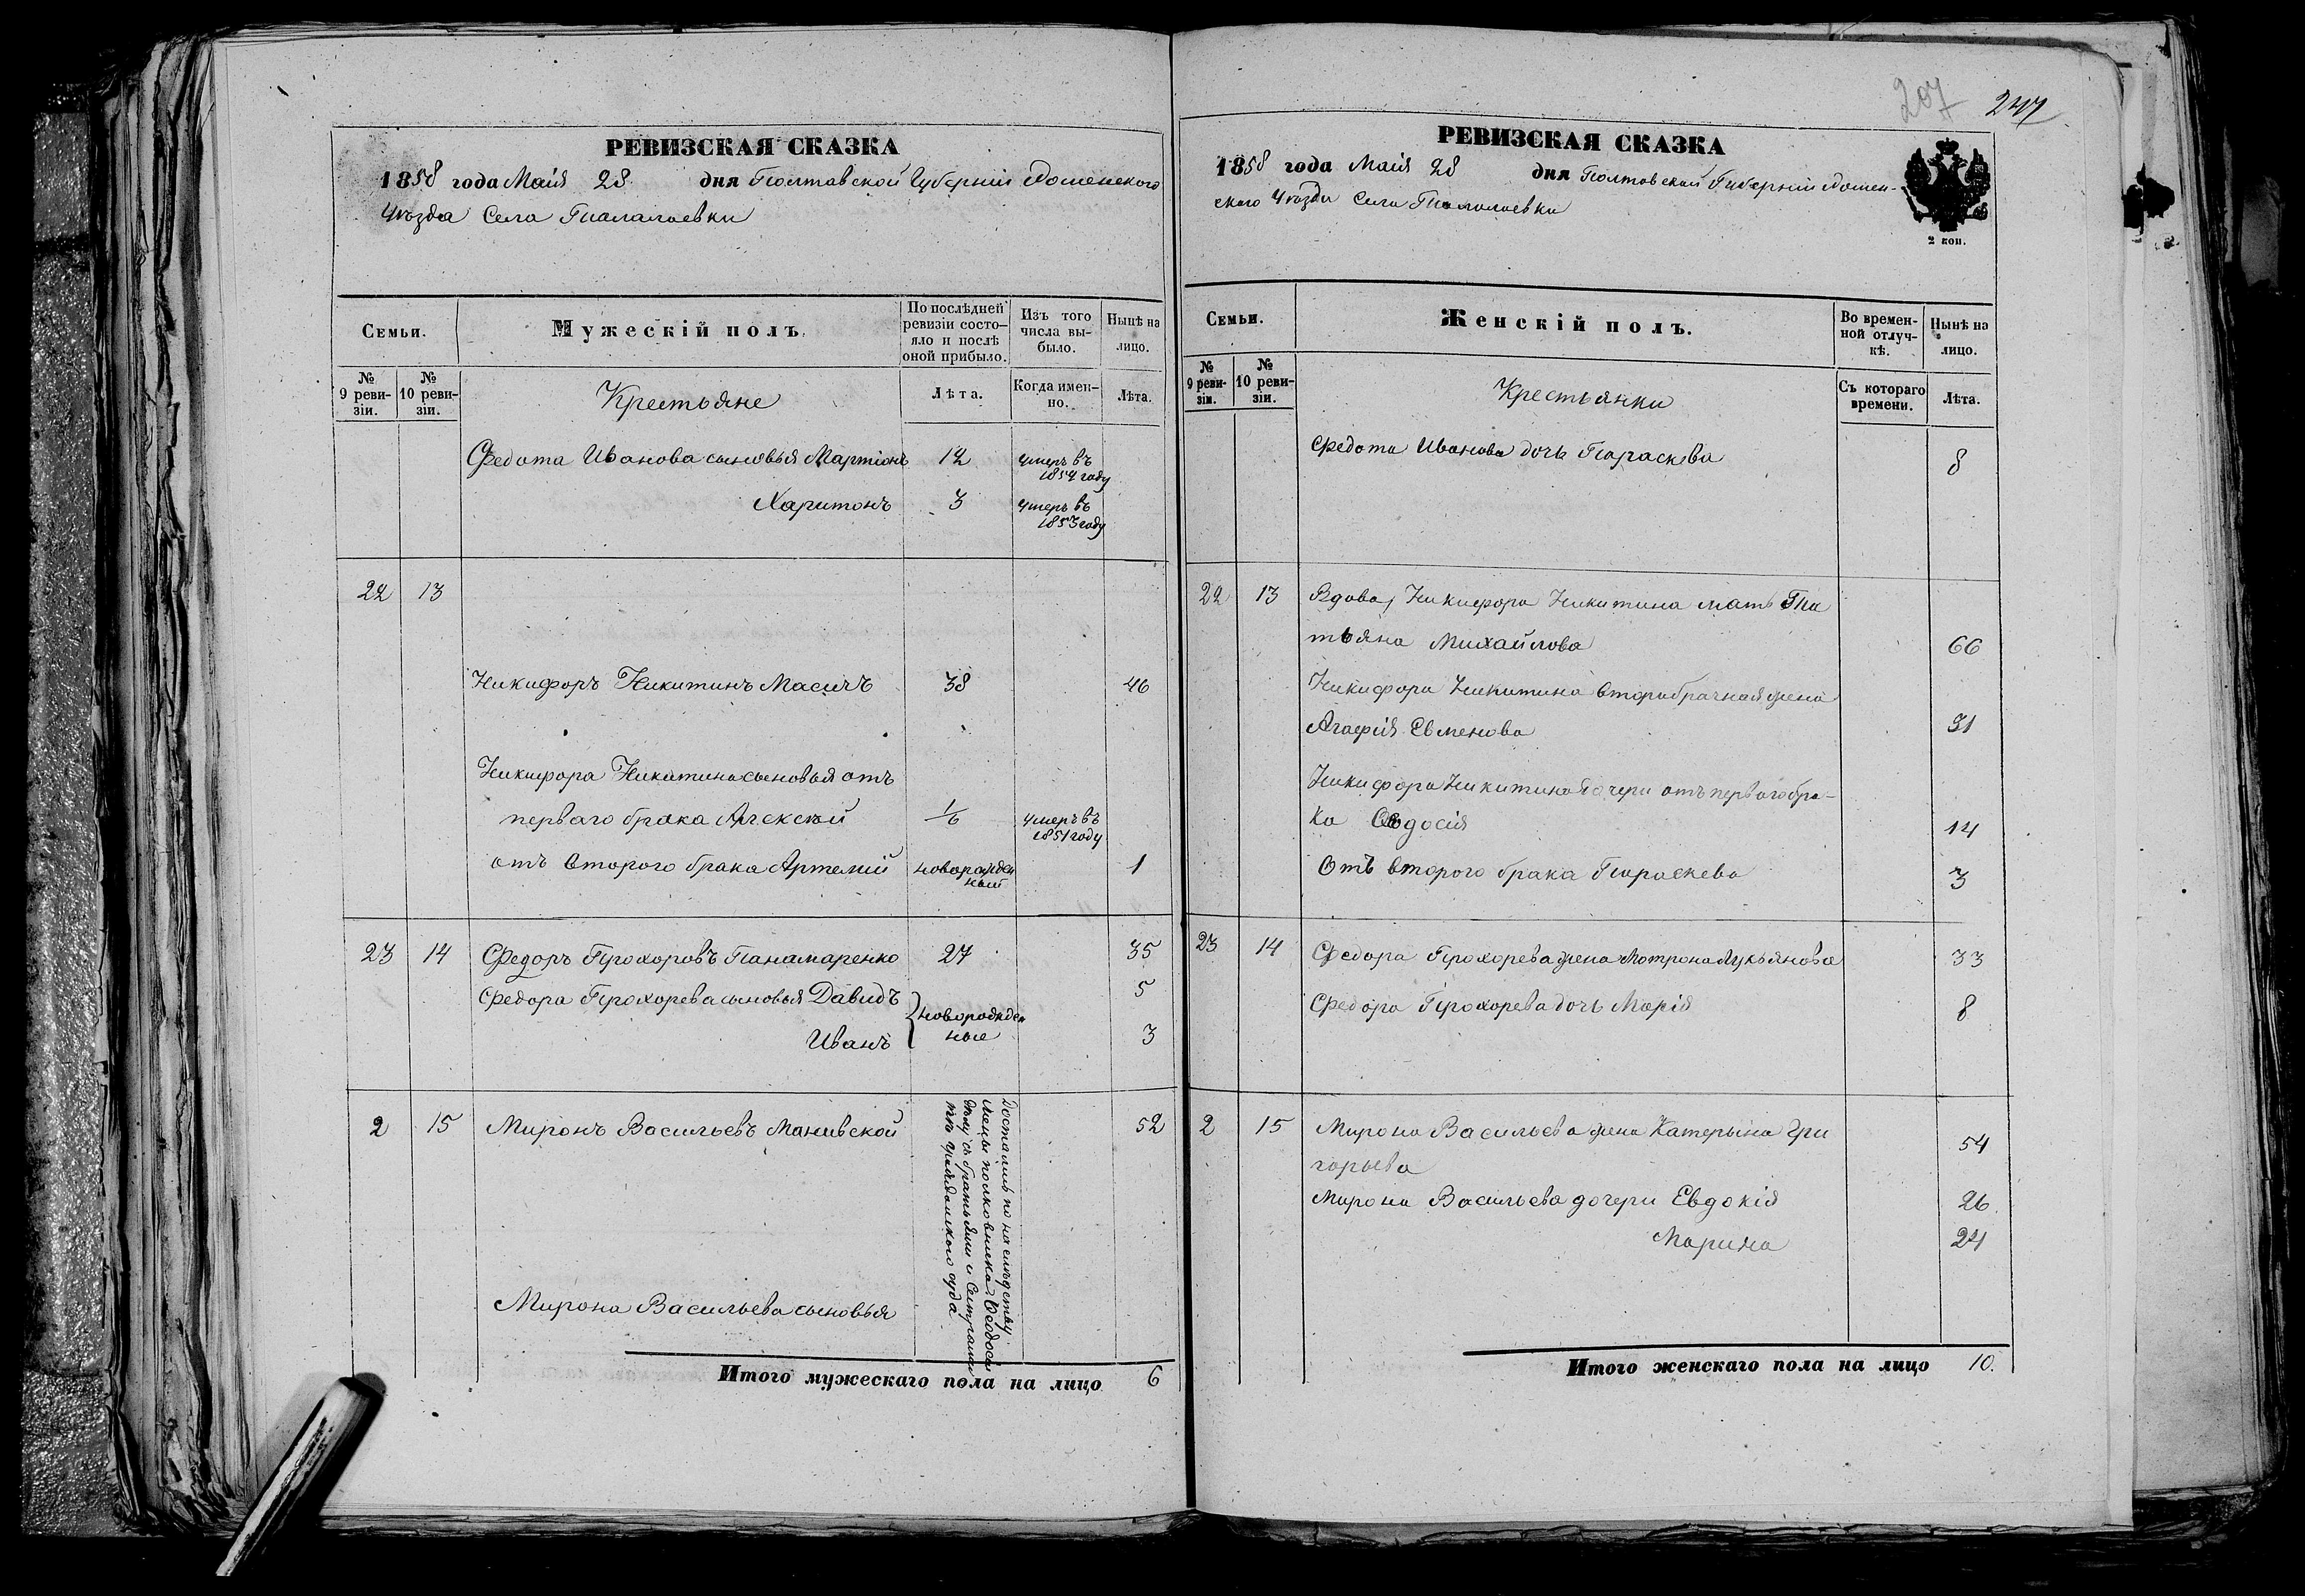 РЕВИЗСКАЯ СКАЗКА
1858 года Маія 28 дня Полтавской Губерніи Роменского
Уѣзда Села Талалаевки
Семьи.
Мужескій полъ.
По послѣдней ревизіи состояло и послѣ оной прибыло.
Изъ того числа выбыло.
Нынѣ на лицо.
№ 9 ревизіи.
№ 10 ревизіи.
Крестьяне
Лѣта.
Когда именно.
Лѣта.
Федота Иванова сыновья Мартінъ 12 умеръ въ 1854 году
Харитонъ 3 умеръ въ 1853 году
22 13
Никифоръ Никитинъ Масичъ 38 46
Никифора Никитина сыновья отъ
перваго брака Алексѣй 1/6 умеръ въ 1851 году
отъ второго брака Артемій новорожденный 1
23 14 Федоръ Прохоровъ Панамаренко 27 35
Федора Прохорева сыновья Давидъ 5
новорожденные
Иванъ 3
2 15 Миронъ Васильевъ Манивской 52
Достались по наслѣдству
Мирона Васильева сыновья
Итого мужескаго пола на лицо 6
207 247
РЕВИЗСКАЯ СКАЗКА
1858 года Маія 28 дня Полтовской Губерніи Ромен-
ского Уѣзда Села Талалаевки
2 коп.
Семьи.
Женскій полъ.
Во временной отлучкѣ.
Нынѣ на лицо.
№ 9 ревизіи.
№ 10 ревизіи.
Крестьянки
Съ котораго времени.
Лѣта.
Федота Иванова дочь Параскева 8
22 13 Вдова, Никифора Никитина мать Та
тьяна Михайлова 66
Никифора Никитина второбрачная жена
Агафія Евменова 31
Никифора Никитина дочери отъ перваго бра-
ка Федосія 14
Отъ второго брака Параскева 3
23 14 Федора Прохорева жена Мотрона Лукьянова 33
Федора Прохорева дочь Марія 8
2 15 Мирона Васильева жена Катерына Гри
горьева 54
Мирона Васильева дочери Евдокія 26
Марина 24
Итого женскаго пола на лицо 10.